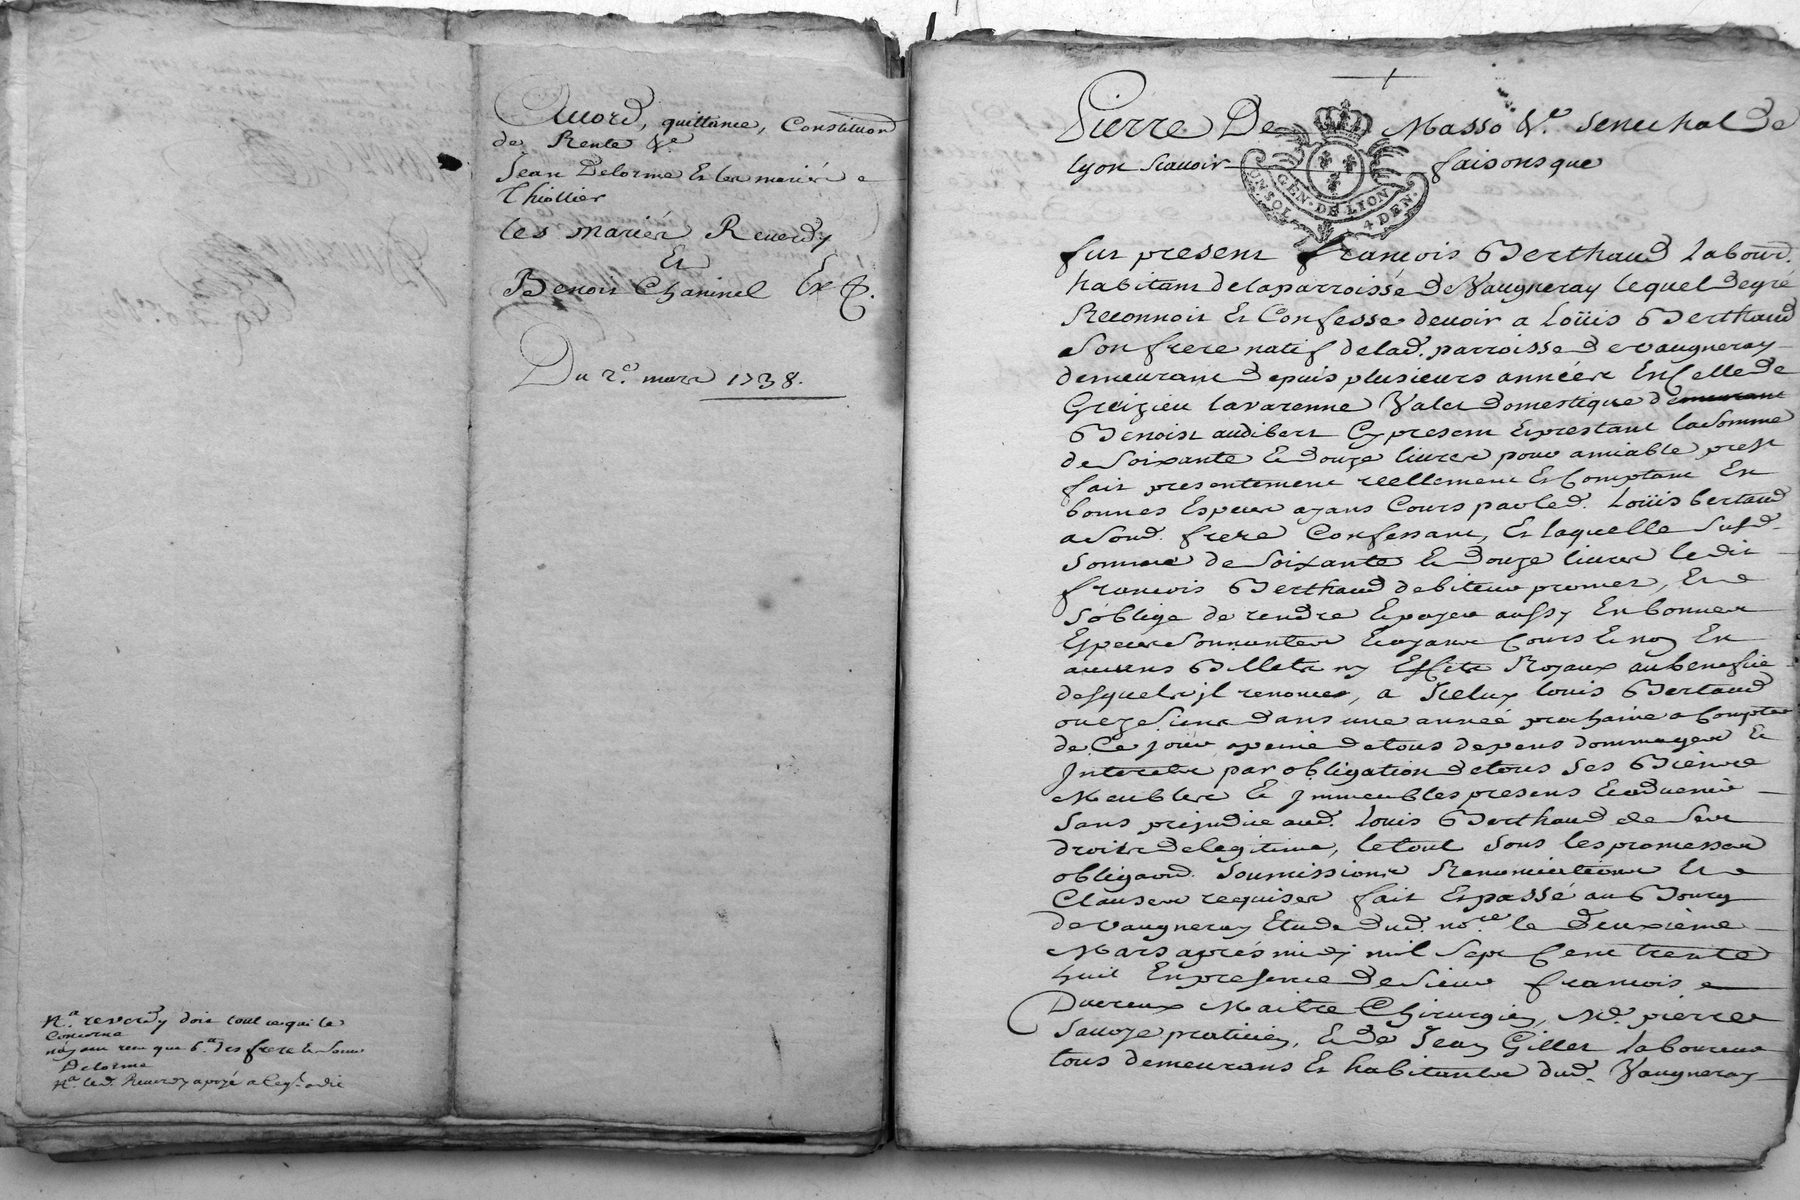 Accord, quittance, Constitution
de Rente &c
Jean Delorme Et les mariés
Thiollier
les mariés Reverdy
Et
Benoit Chaninel
Du 2e. mars 1738.
Na. reverdy doit tout ce qui le
Concerne
Delorme
Na. led. Reverdy a payé
Pierre De Masso &c. Senechal De
lyon Scavoir faisons que
GEN. DE LION
UN SOL 4 DEN.
fut present françois Berthaud Labour.
habitant de la parroisse De Vaugneray lequel De gré
Reconnoit Et Confesse devoir a Loüis Berthaud
Son frere natif de lad. parroisse De vaugneray
demeurant Depuis plusieurs années En Celle De
Greizieu lavarenne Valet Domestique de
Benoist audibert Cy present Et prestant la Somme
de Soixante & Douze livres pour amiable prest
fait presentement reellement Et Comptant En
bonnes Especes ayans Cours par led. Loüis bertaud
a Sond. frere Confessant, Et laquelle Susd.
Somme de Soixante & Douze livres ledit
françois Berthaud debiteur promet, Et
S'oblige de rendre & payer aussy En bonnes
Especes Sonnantes & ayant Cours & non En
aucuns Billets ny Effets Royaux au benefice
desquels il renonce, a Icelux louis Bertaud
ou ez Siens Dans une année prochaine a Compter
de Ce jour a peine De tous depens dommages &
Interets par obligation De tous Ses Biens
Meubles & Immeubles presens & advenir
Sans prejudice aud. Louis Berthaud de Ses
droits De legitime, le tout Sous les promesses
obligaond. Soumissions Renonciations Et
Clauses requises fait Et passé au Bourg
de vaugneray Etude dud. nore. le Deuxième
Mars après midy mil Sept Cent trente
huit En presence De Sieur françois
Ducreux Maitre Chirurgien, Me. pierre
Savoye praticien, & De Jean Gillet Laboureur
tous demeurans Et habitants dud. Vaugneray